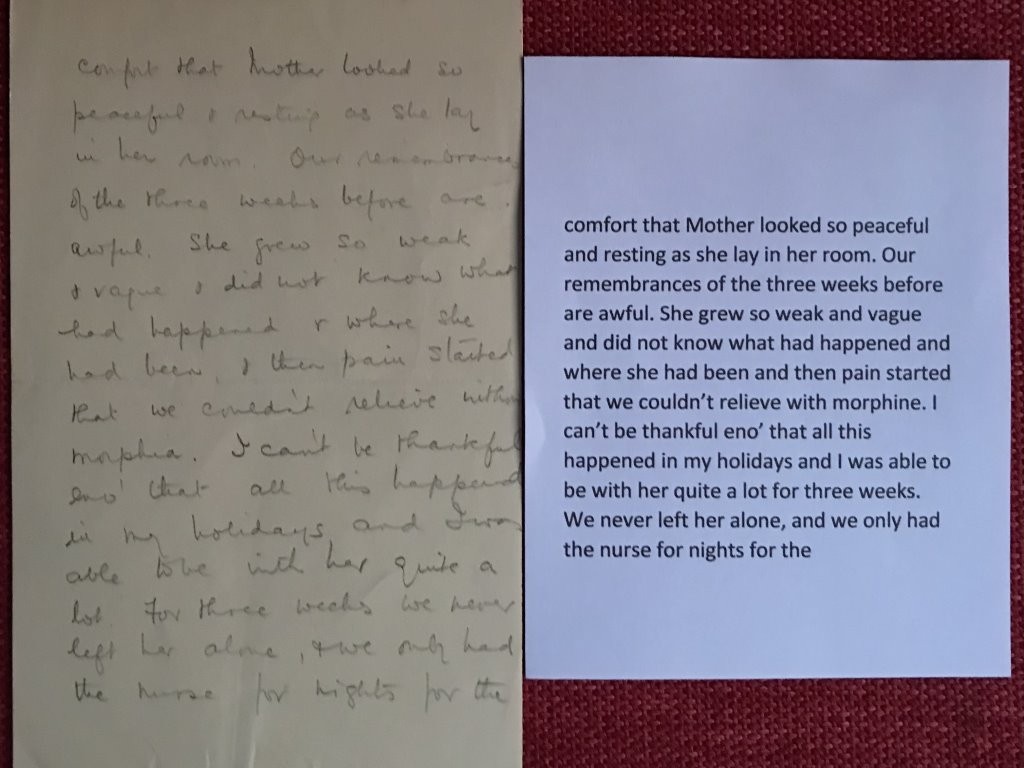 comfort that Mother looked so
peaceful & resting as she lay
in her room. Our remembrance
of the three weeks before are.
awful. She grew so weak
& vague & did not know what
had happened & where she
had been, & then pain started
that we couldn't relieve
morphia. I can't be thankful
eno' that all this happened
in my holidays and I was
able to be with her quite a
lot. For three weeks we never
left her alone, & we only had
the nurse for nights for the
comfort that Mother looked so peaceful
and resting as she lay in her room. Our
remembrances of the three weeks before
are awful. She grew so weak and vague
and did not know what had happened and
where she had been and then pain started
that we couldn't relieve with morphine. I
can't be thankful eno' that all this
happened in my holidays and I was able to
be with her quite a lot for three weeks.
We never left her alone, and we only had
the nurse for nights for the